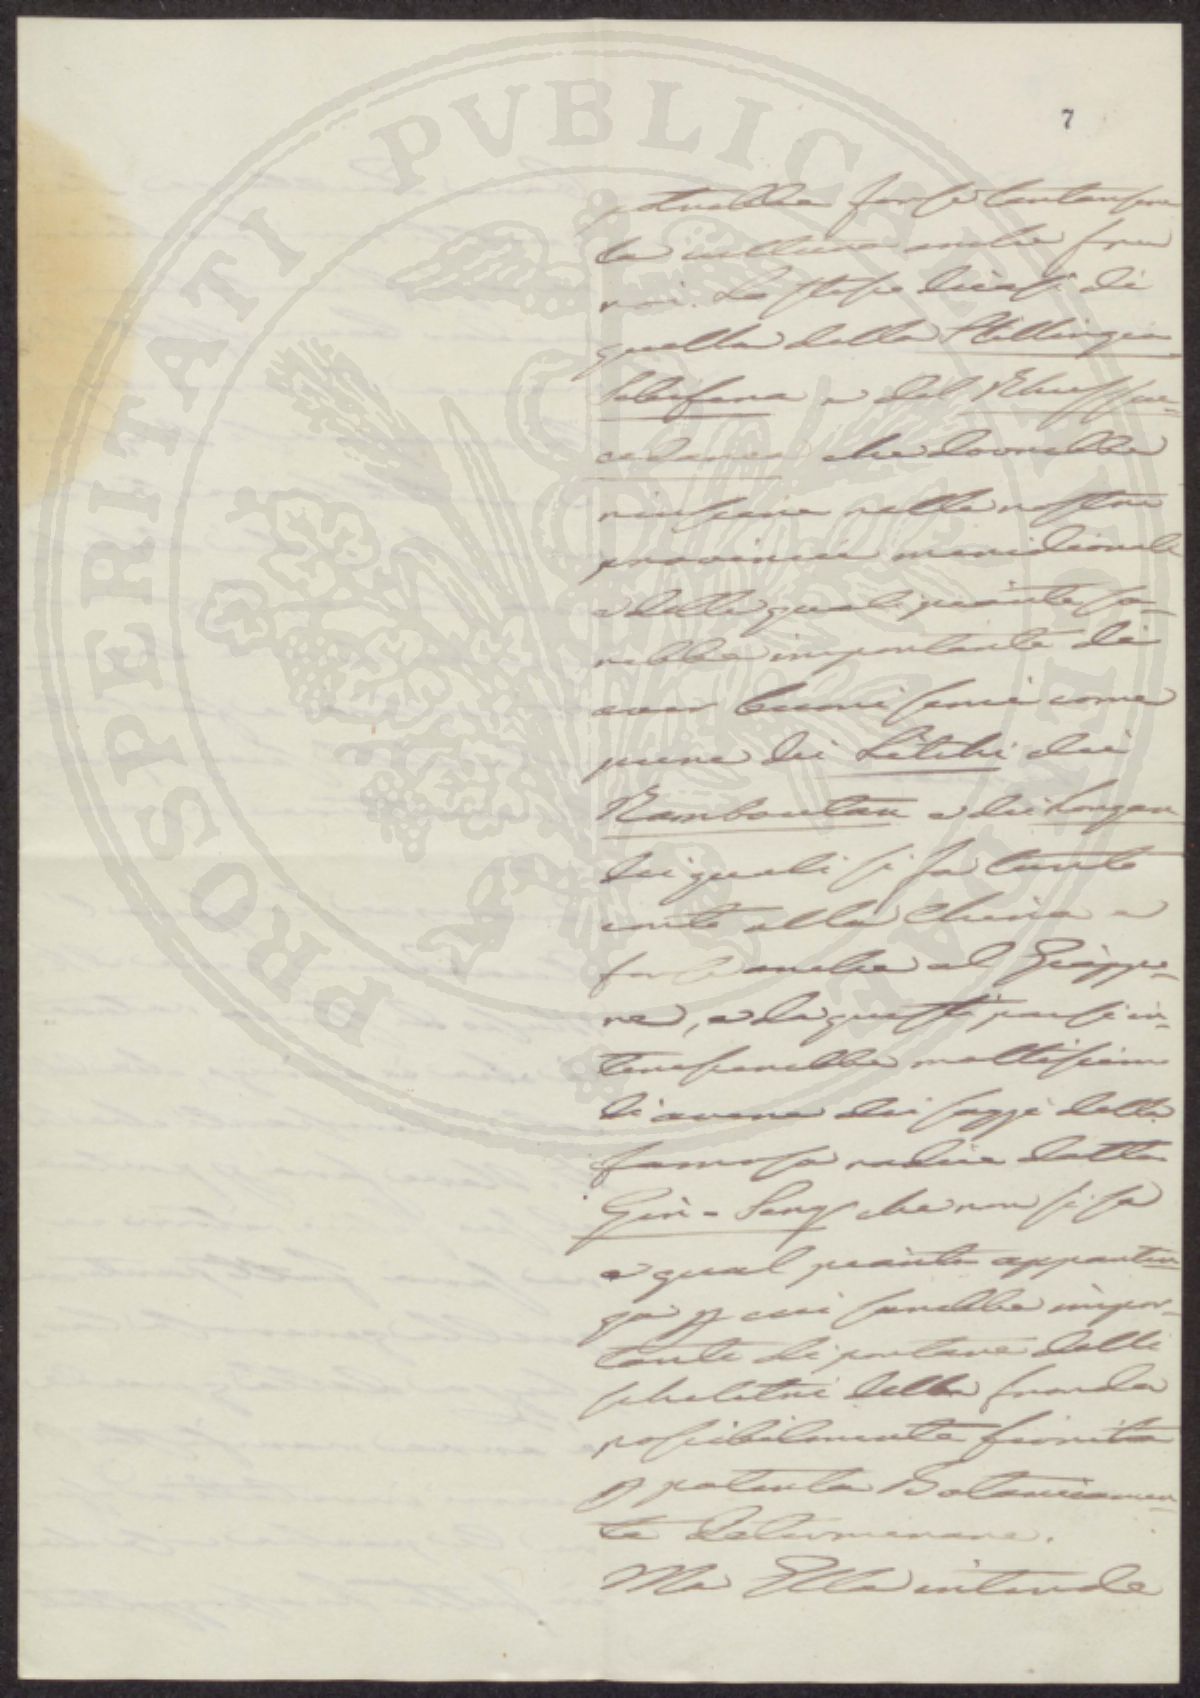 PROSPERITATI PVBLICAE
7
potrebbe forse tentarsene
la cultura anche fra
noi. Lo stesso dicasi di
quella della Stillingia
Sebifera e del Rhus suc-
cedanea che dovrebbe
riuscire nelle nostre
provincie meridionali
e delle quali piante sa-
rebbe importante di
aver buoni semi come
pure dei Litchi dei
Ramboutan e dei Longan
dei quali si fa tanto
conto alla China e
forse anche al Giappo-
ne, e da questi paesi in-
teresserebbe moltissimo
di avere dei saggi della
famosa radice detta
Gin-Seng che non si sa
a qual pianta apparten-
ga p cui sarebbe impor-
tante di portare delli
scheletri della fronda
possibilmente fiorita
p poterla Botanicamen-
te determinare.
Ma Ella intende